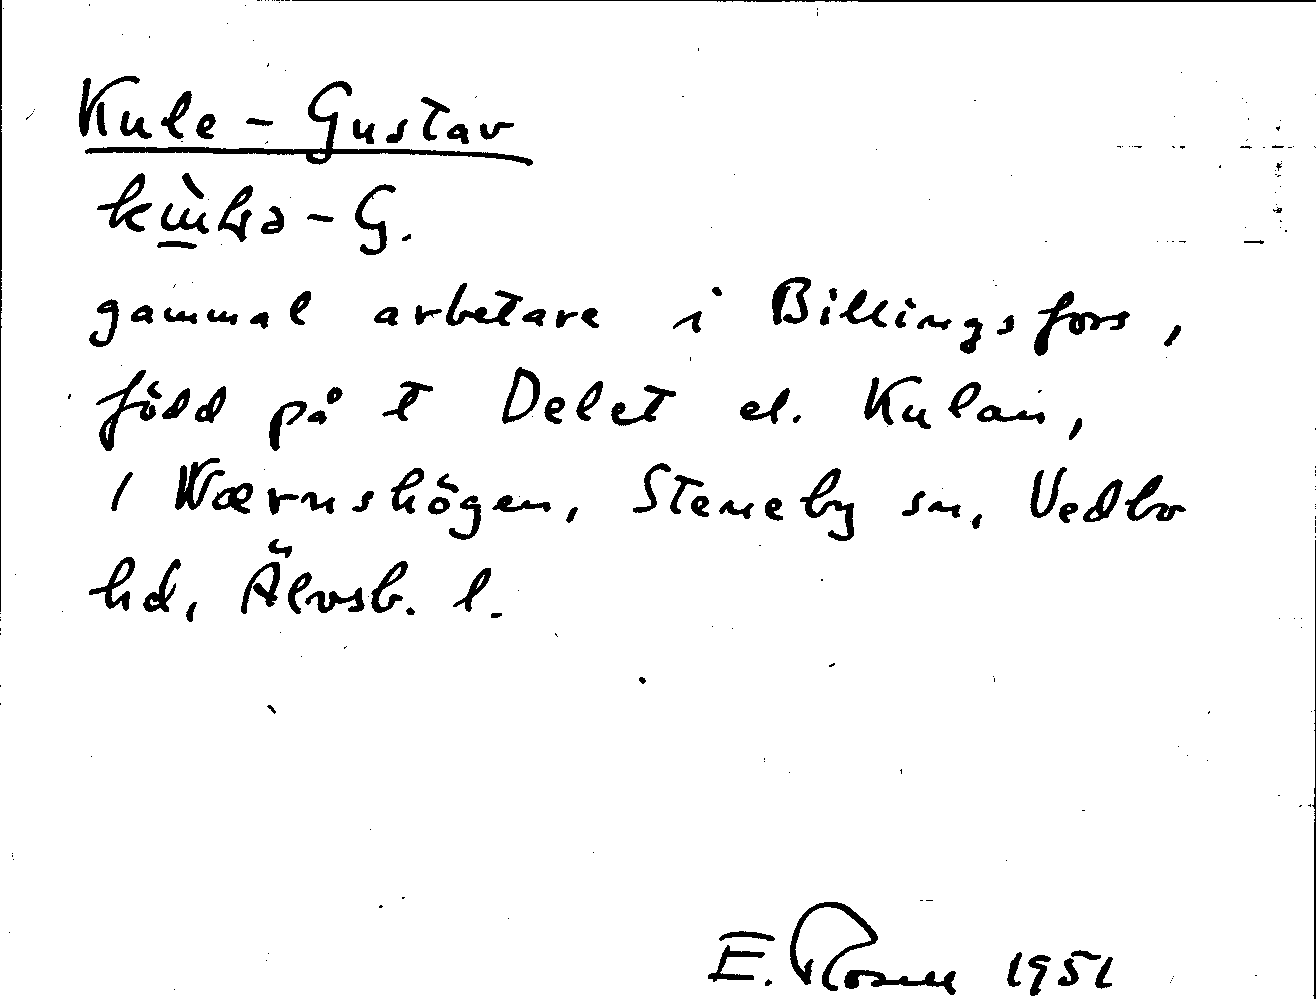 Kule - Gustav
gammal arbetare i Billingsfors,
född på t Delet el. Kulan,
i Wærnshögen, Steneby sn, Vedbo
hd, Älvsb. l.
E. Rosell 1951